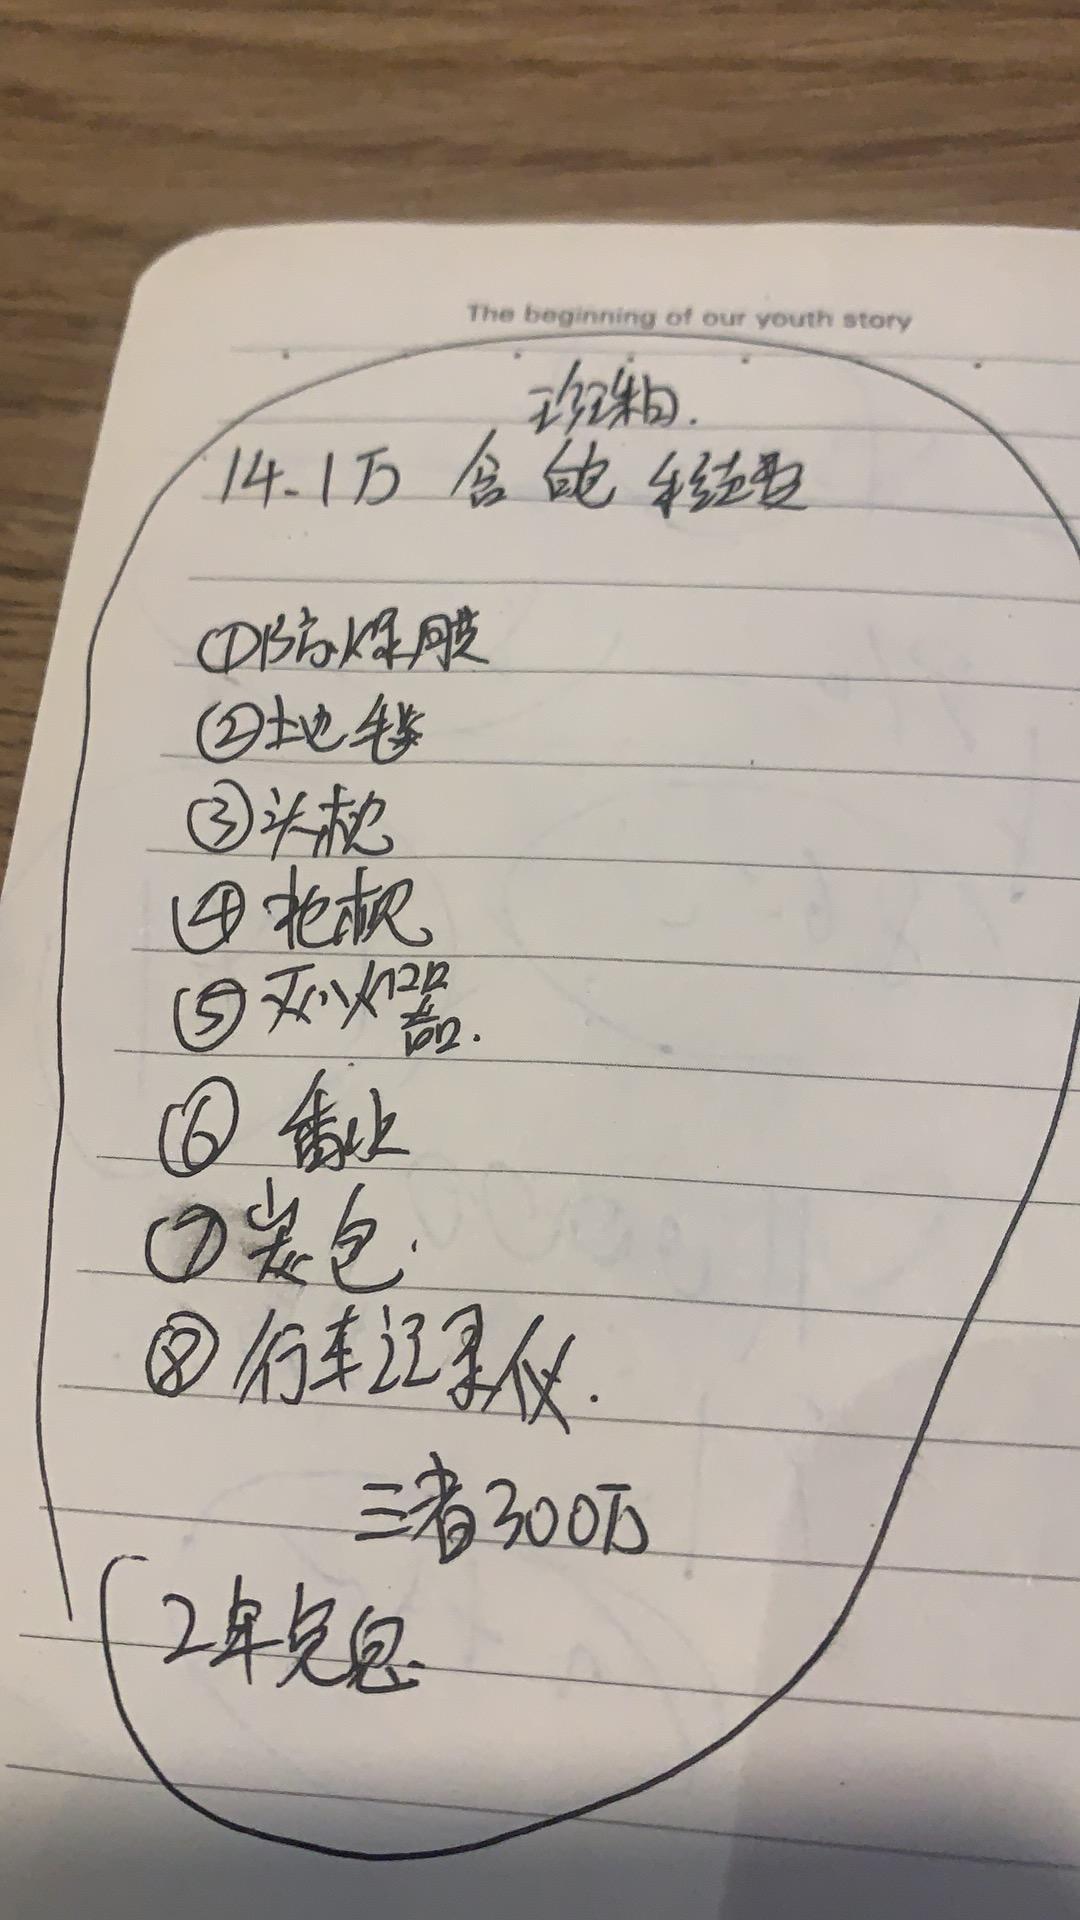 The beginning of our youth story
珍珠白.
14.1万 含
①防爆膜
②地毯
③头枕
④抱枕
⑤灭火器.
⑥香水
⑦炭包.
⑧行车记录仪.
三者300万
2年免息.